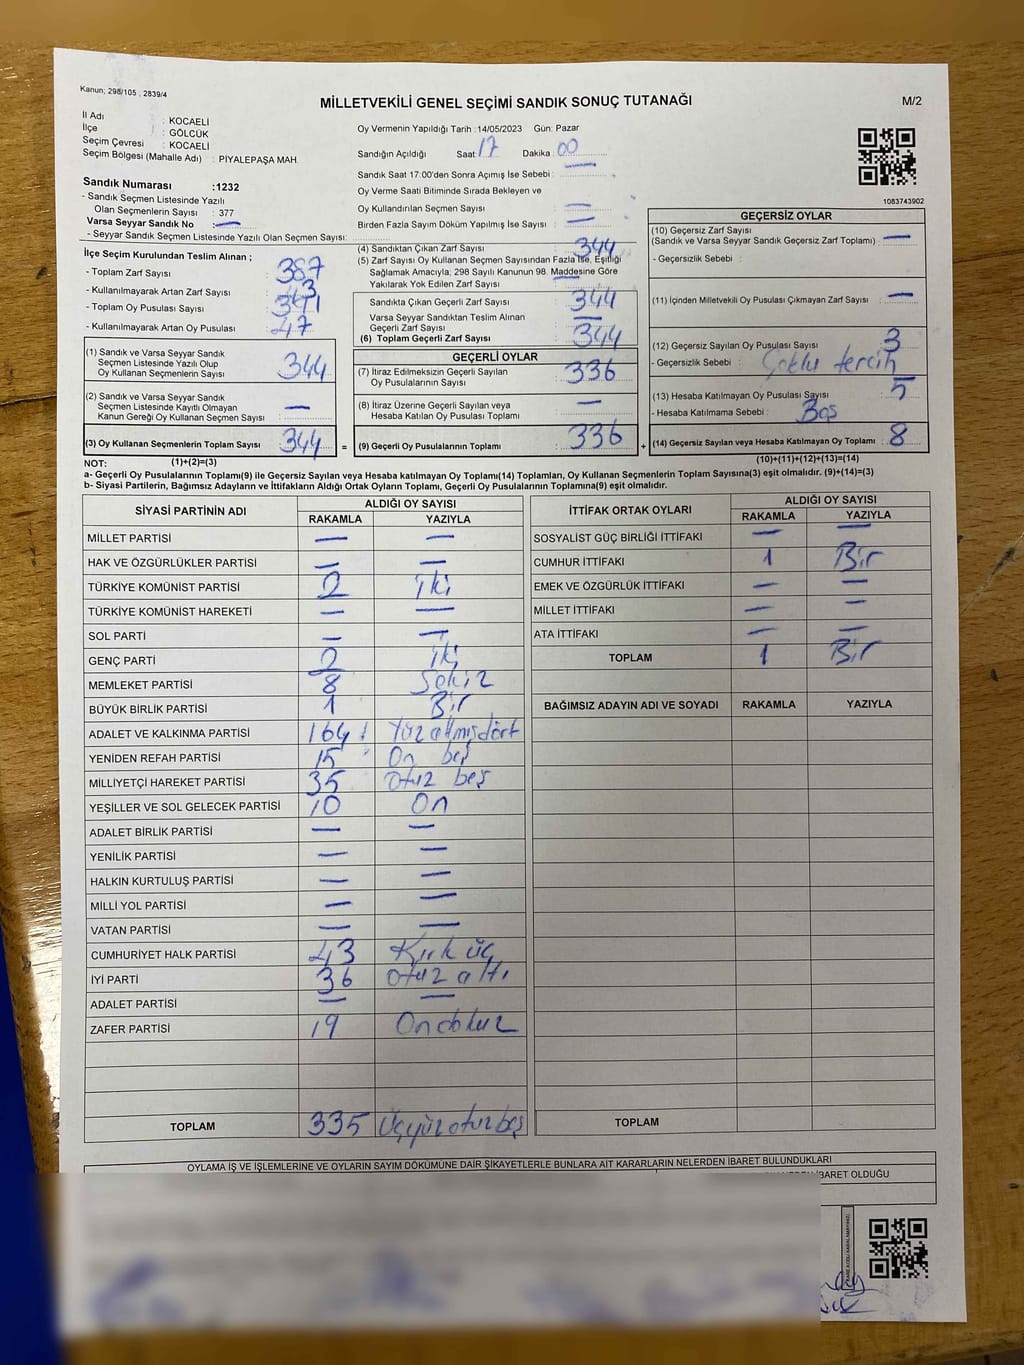 Kanun; 298/105 , 2839/4
MİLLETVEKİLİ GENEL SEÇİMİ SANDIK SONUÇ TUTANAĞI
M/2
İl Adı : KOCAELİ
İlçe : GÖLCÜK
Seçim Çevresi : KOCAELİ
Seçim Bölgesi (Mahalle Adı) : PİYALEPAŞA MAH.
Oy Vermenin Yapıldığı Tarih :14/05/2023 Gün: Pazar
Sandığın Açıldığı Saat : 17 Dakika : 00
Sandık Saat 17:00'den Sonra Açımış İse Sebebi : —
Oy Verme Saati Bitiminde Sırada Bekleyen ve
Oy Kullandırılan Seçmen Sayısı : —
Birden Fazla Sayım Döküm Yapılmış İse Sayısı : —
Sandık Numarası :1232
- Sandık Seçmen Listesinde Yazılı
Olan Seçmenlerin Sayısı : 377
Varsa Seyyar Sandık No : —
- Seyyar Sandık Seçmen Listesinde Yazılı Olan Seçmen Sayısı:
1083743902
İlçe Seçim Kurulundan Teslim Alınan ;
- Toplam Zarf Sayısı : 387
- Kullanılmayarak Artan Zarf Sayısı : 43
- Toplam Oy Pusulası Sayısı :
- Kullanılmayarak Artan Oy Pusulası : 47
(1) Sandık ve Varsa Seyyar Sandık
Seçmen Listesinde Yazılı Olup
Oy Kullanan Seçmenlerin Sayısı : 344
(2) Sandık ve Varsa Seyyar Sandık
Seçmen Listesinde Kayıtlı Olmayan
Kanun Gereği Oy Kullanan Seçmen Sayısı : —
(3) Oy Kullanan Seçmenlerin Toplam Sayısı : 344
(1)+(2)=(3)
(4) Sandıktan Çıkan Zarf Sayısı : 344
(5) Zarf Sayısı Oy Kullanan Seçmen Sayısından Fazla İse, Eşitliği
Sağlamak Amacıyla, 298 Sayılı Kanunun 98. Maddesine Göre
Yakılarak Yok Edilen Zarf Sayısı : —
Sandıkta Çıkan Geçerli Zarf Sayısı : 344
Varsa Seyyar Sandıktan Teslim Alınan
Geçerli Zarf Sayısı : —
(6) Toplam Geçerli Zarf Sayısı : 344
GEÇERLİ OYLAR
(7) İtiraz Edilmeksizin Geçerli Sayılan
Oy Pusulalarının Sayısı : 336
(8) İtiraz Üzerine Geçerli Sayılan veya
Hesaba Katılan Oy Pusulası Toplamı : —
= (9) Geçerli Oy Pusulalarının Toplamı : 336
GEÇERSİZ OYLAR
(10) Geçersiz Zarf Sayısı
(Sandık ve Varsa Seyyar Sandık Geçersiz Zarf Toplamı) : —
- Geçersizlik Sebebi :
(11) İçinden Milletvekili Oy Pusulası Çıkmayan Zarf Sayısı : —
(12) Geçersiz Sayılan Oy Pusulası Sayısı : 3
- Geçersizlik Sebebi : Çoklu tercih
(13) Hesaba Katılmayan Oy Pusulası Sayısı : 5
- Hesaba Katılmama Sebebi : Boş
+ (14) Geçersiz Sayılan veya Hesaba Katılmayan Oy Toplamı : 8
(10)+(11)+(12)+(13)=(14)
NOT:
a- Geçerli Oy Pusulalarının Toplamı(9) ile Geçersiz Sayılan veya Hesaba Katılmayan Oy Toplamı(14) Toplamları, Oy Kullanan Seçmenlerin Toplam Sayısına(3) eşit olmalıdır. (9)+(14)=(3)
b- Siyasi Partilerin, Bağımsız Adayların ve İttifakların Aldığı Ortak Oyların Toplamı, Geçerli Oy Pusulalarının Toplamına(9) eşit olmalıdır.
SİYASİ PARTİNİN ADI ALDIĞI OY SAYISI
RAKAMLA YAZIYLA
MİLLET PARTİSİ — —
HAK VE ÖZGÜRLÜKLER PARTİSİ — —
TÜRKİYE KOMÜNİST PARTİSİ 2 iki
TÜRKİYE KOMÜNİST HAREKETİ — —
SOL PARTİ — —
GENÇ PARTİ 2 iki
MEMLEKET PARTİSİ 8 Sekiz
BÜYÜK BİRLİK PARTİSİ 1 Bir
ADALET VE KALKINMA PARTİSİ 164 Yüz altmışdört
YENİDEN REFAH PARTİSİ 15 On beş
MİLLİYETÇİ HAREKET PARTİSİ 35 otuz beş
YEŞİLLER VE SOL GELECEK PARTİSİ 10 On
ADALET BİRLİK PARTİSİ — —
YENİLİK PARTİSİ — —
HALKIN KURTULUŞ PARTİSİ — —
MİLLİ YOL PARTİSİ — —
VATAN PARTİSİ — —
CUMHURİYET HALK PARTİSİ 43 Kırk üç
İYİ PARTİ 36 otuz altı
ADALET PARTİSİ — —
ZAFER PARTİSİ 19 On dokuz
TOPLAM 335 Üçyüzotuzbeş
İTTİFAK ORTAK OYLARI ALDIĞI OY SAYISI
RAKAMLA YAZIYLA
SOSYALİST GÜÇ BİRLİĞİ İTTİFAKI — —
CUMHUR İTTİFAKI 1 Bir
EMEK VE ÖZGÜRLÜK İTTİFAKI — —
MİLLET İTTİFAKI — —
ATA İTTİFAKI — —
TOPLAM 1 Bir
BAĞIMSIZ ADAYIN ADI VE SOYADI RAKAMLA YAZIYLA
TOPLAM
OYLAMA İŞ VE İŞLEMLERİNE VE OYLARIN SAYIM DÖKÜMÜNE DAİR ŞİKAYETLERLE BUNLARA AİT KARARLARIN NELERDEN İBARET BULUNDUKLARI
İBARET OLDUĞU